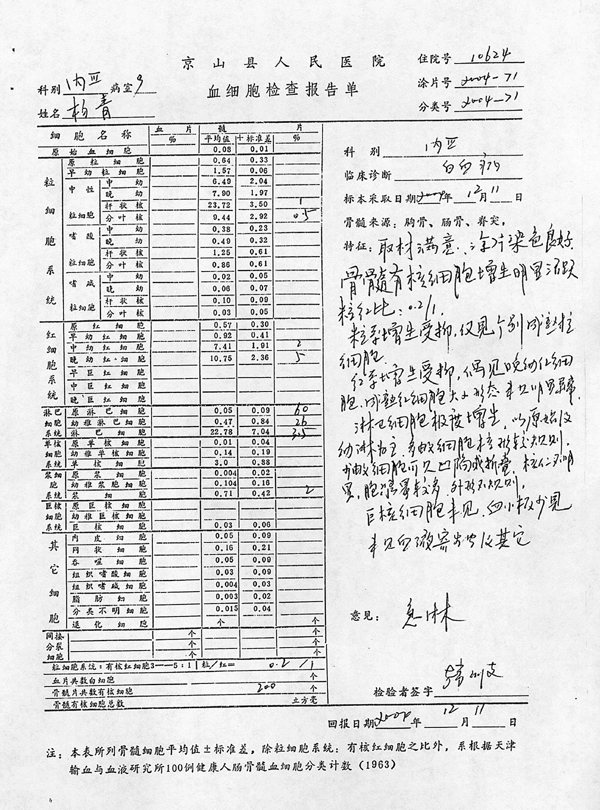 京山县人民医院
血细胞检查报告单
住院号 10624
涂片号 2004-71
分类号 2004-71
科别 内 病室 9
姓名 柏青
细胞名称 血片 % 髓片 平均值 ±标准差 %
原始血细胞 0.08 0.01
粒细胞系统
原粒细胞 0.64 0.33
早幼粒细胞 1.57 0.06
中性粒细胞
中幼 6.49 2.04
晚幼 7.90 1.97
杆状核 23.72 3.50 1
分叶核 9.44 2.92 0.5
嗜酸粒细胞
中幼 0.38 0.23
晚幼 0.49 0.32
杆状核 1.25 0.61
分叶核 0.86 0.61
嗜碱粒细胞
中幼 0.02 0.05
晚幼 0.06 0.07
杆状核 0.10 0.09
分叶核 0.03 0.05
红细胞系统
原红细胞 0.57 0.30
早幼红细胞 0.92 0.41
中幼红细胞 7.41 1.91 2
晚幼红细胞 10.75 2.36 5
早巨红细胞
中巨红细胞
晚巨红细胞
淋巴细胞系统
原淋巴细胞 0.05 0.09 60
幼稚淋巴细胞 0.47 0.84 26
淋巴细胞 22.78 7.04 3.5
单核细胞系统
原单核细胞 0.01 0.04
幼稚单核细胞 0.14 0.19
单核细胞 3.0 0.88
浆细胞系统
原浆细胞 0.004 0.02
幼稚浆细胞 0.104 0.16
浆细胞 0.71 0.42 2
巨核细胞系统
原巨核细胞
幼稚巨核细胞
巨核细胞 0.03 0.06
其它细胞
内皮细胞 0.05 0.09
网状细胞 0.16 0.21
吞噬细胞 0.05 0.09
组织嗜酸细胞 0.03 0.09
组织嗜碱细胞 0.004 0.03
脂肪细胞 0.003 0.02
分类不明细胞 0.015 0.04
退化细胞 个 个
间接分裂细胞 个 个
个 个
个 个
粒细胞系统:有核红细胞3—5:1 粒/红= 0.2/1
血片共数白细胞 个
骨髓片共数有核细胞 200 个
骨髓有核细胞总数 立方毫
科别 内
临床诊断 白血病
标本采取日期 2004年12月11日
骨髓来源:胸骨、肠骨、脊突,
特征:取材满意,涂片染色良好
骨髓有核细胞增生明显活跃
粒红比:0.2/1
粒系增生受抑,仅见个别成熟粒
细胞
红系增生受抑,偶见晚幼红细
胞,成熟红细胞大小形态未见明显异常
淋巴细胞极度增生,以原始及
幼淋为主,多数细胞核形较规则
少数细胞可见凹陷或折叠,核仁不明
显,胞浆量较多,外形不规则,
巨核细胞未见,血小板少见
未见血液寄生虫及其它
意见: 急淋
检验者签字
回报日期 2004年12月11日
注:本表所列骨髓细胞平均值±标准差,除粒细胞系统:有核红细胞之比外,系根据天津
输血与血液研究所100例健康人肠骨髓血细胞分类计数(1963)